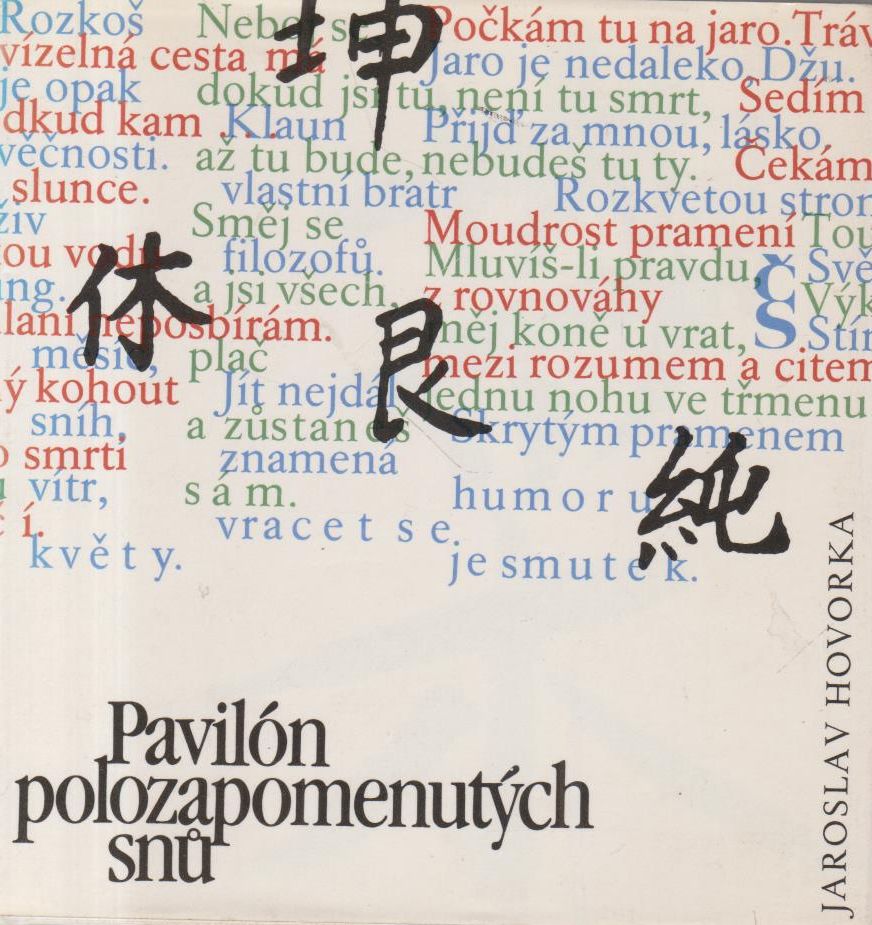 Rozkoš
vízelná cesta má
je opak
dkud kam . . .
věčnosti.
slunce.
živ
tou vodu
ng.
neposbírám.
měsíc,
ý kohout
sníh,
o smrti
vítr,
č í.
květy.
坤
dokud jsi tu, není tu smrt,
Klaun
až tu bude, nebudeš tu ty.
vlastní bratr
Směj se
filozofů.
a jsi všech,
plač
Jít nejdál
a zůstaneš
znamená
sám.
vracet se.
休
艮
純
Počkám tu na jaro. Tráv
Jaro je nedaleko, Džu.
Sedím
Přijď za mnou, lásko,
Čekám
Rozkvetou strom
Moudrost pramení
Tou
Mluvíš-li pravdu,
Svě
z rovnováhy
Výk
měj koně u vrat,
Stín
mezi rozumem a citem
jednu nohu ve třmenu
Skrytým pramenem
humoru
je smutek.
Č
S
Pavilón
polozapomenutých
snů
JAROSLAV HOVORKA